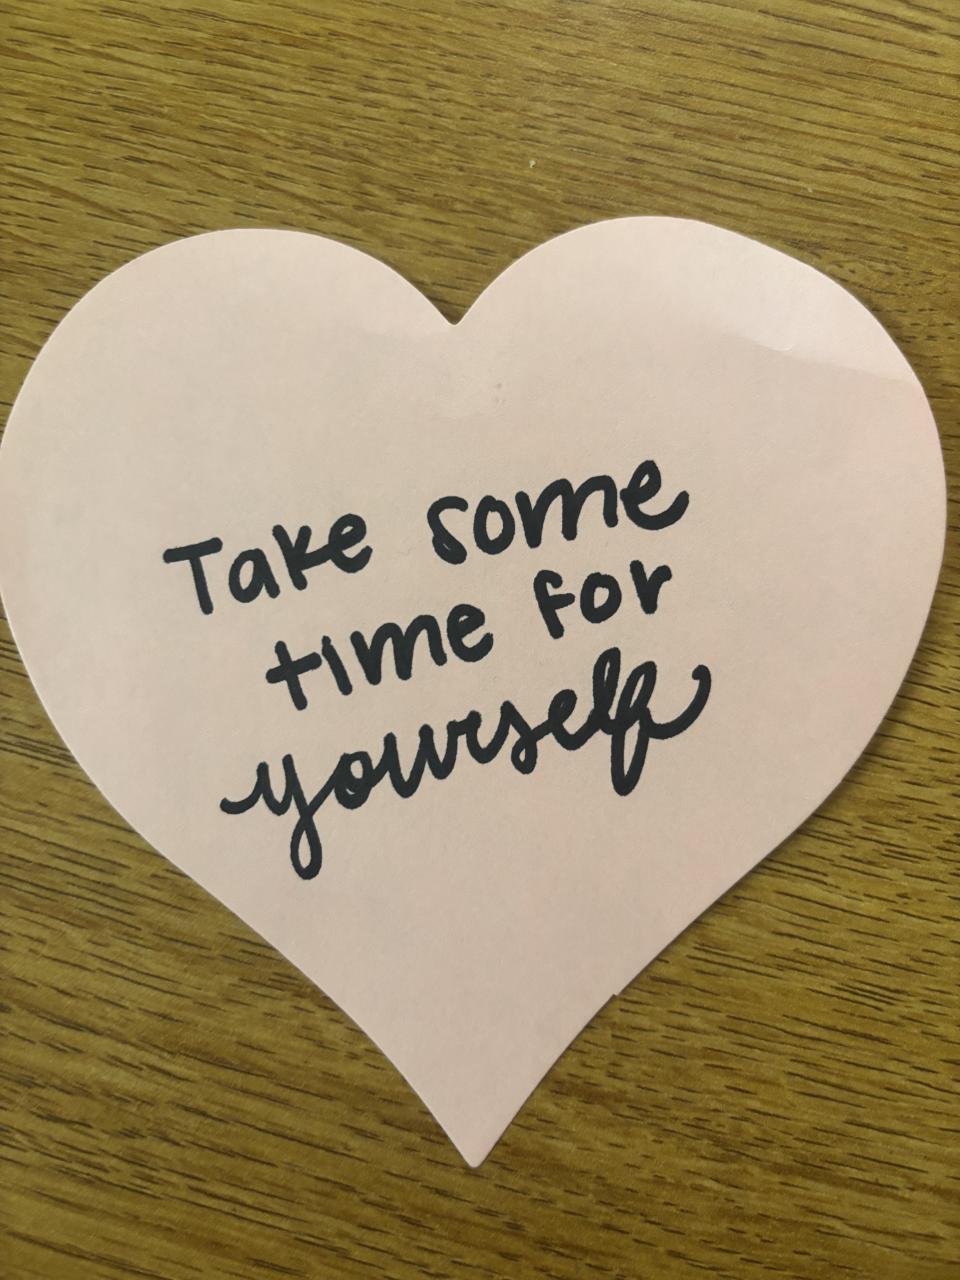 Take some
time for
yourself